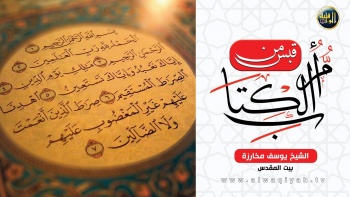 الواقية
قبس من
أُمُّ الكتاب
الشيخ يوسف مخارزة
بيت المقدس
www.alwaqiyah.tv
بِسْمِ اللَّهِ الرَّحْمَٰنِ الرَّحِيمِ
الْحَمْدُ لِلَّهِ رَبِّ الْعَالَمِينَ
الرَّحْمَٰنِ الرَّحِيمِ مَالِكِ يَوْمِ الدِّينِ
إِيَّاكَ نَعْبُدُ وَإِيَّاكَ نَسْتَعِينُ اهْدِنَا
الصِّرَاطَ الْمُسْتَقِيمَ صِرَاطَ الَّذِينَ أَنْعَمْتَ
عَلَيْهِمْ غَيْرِ الْمَغْضُوبِ عَلَيْهِمْ
وَلَا الضَّالِّينَ ٧